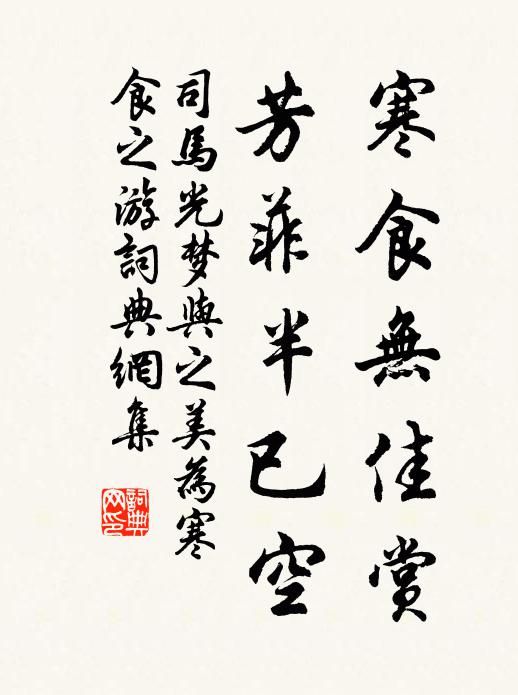 寒食無佳賞
芳菲半已空
司馬光梦與之美為寒
食之游詞典網集
詞典网印